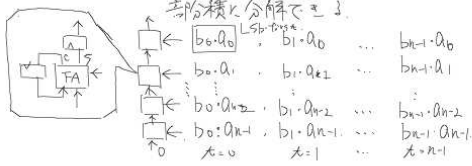 部分積に分解できる.
LSb-first.
b₀·a₀, b₁·a₀ ... bₙ₋₁·a₀
b₀·a₁, b₁·a₁ ... bₙ₋₁·a₁
b₀·aₙ₋₂, b₁·aₙ₋₂ ... bₙ₋₁·aₙ₋₂
b₀·aₙ₋₁, b₁·aₙ₋₁ ... bₙ₋₁·aₙ₋₁.
C S
FA
0 t=0 t=1 ... t=n-1